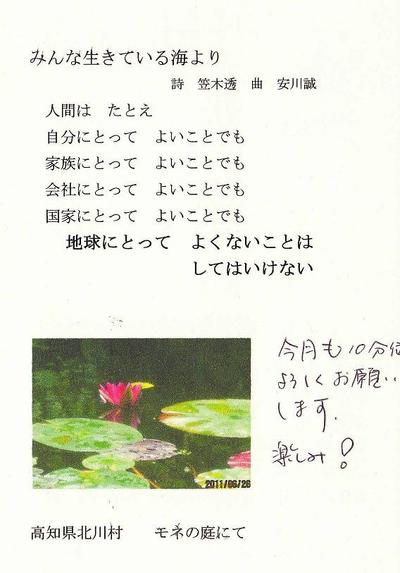 みんな生きている海より
詩　笠木透　曲　安川誠
人間は　たとえ
自分にとって　よいことでも
家族にとって　よいことでも
会社にとって　よいことでも
国家にとって　よいことでも
地球にとって　よくないことは
してはいけない
今月も10分位
よろしくお願い
します.
楽しみ!
2011/06/26
高知県北川村　モネの庭にて